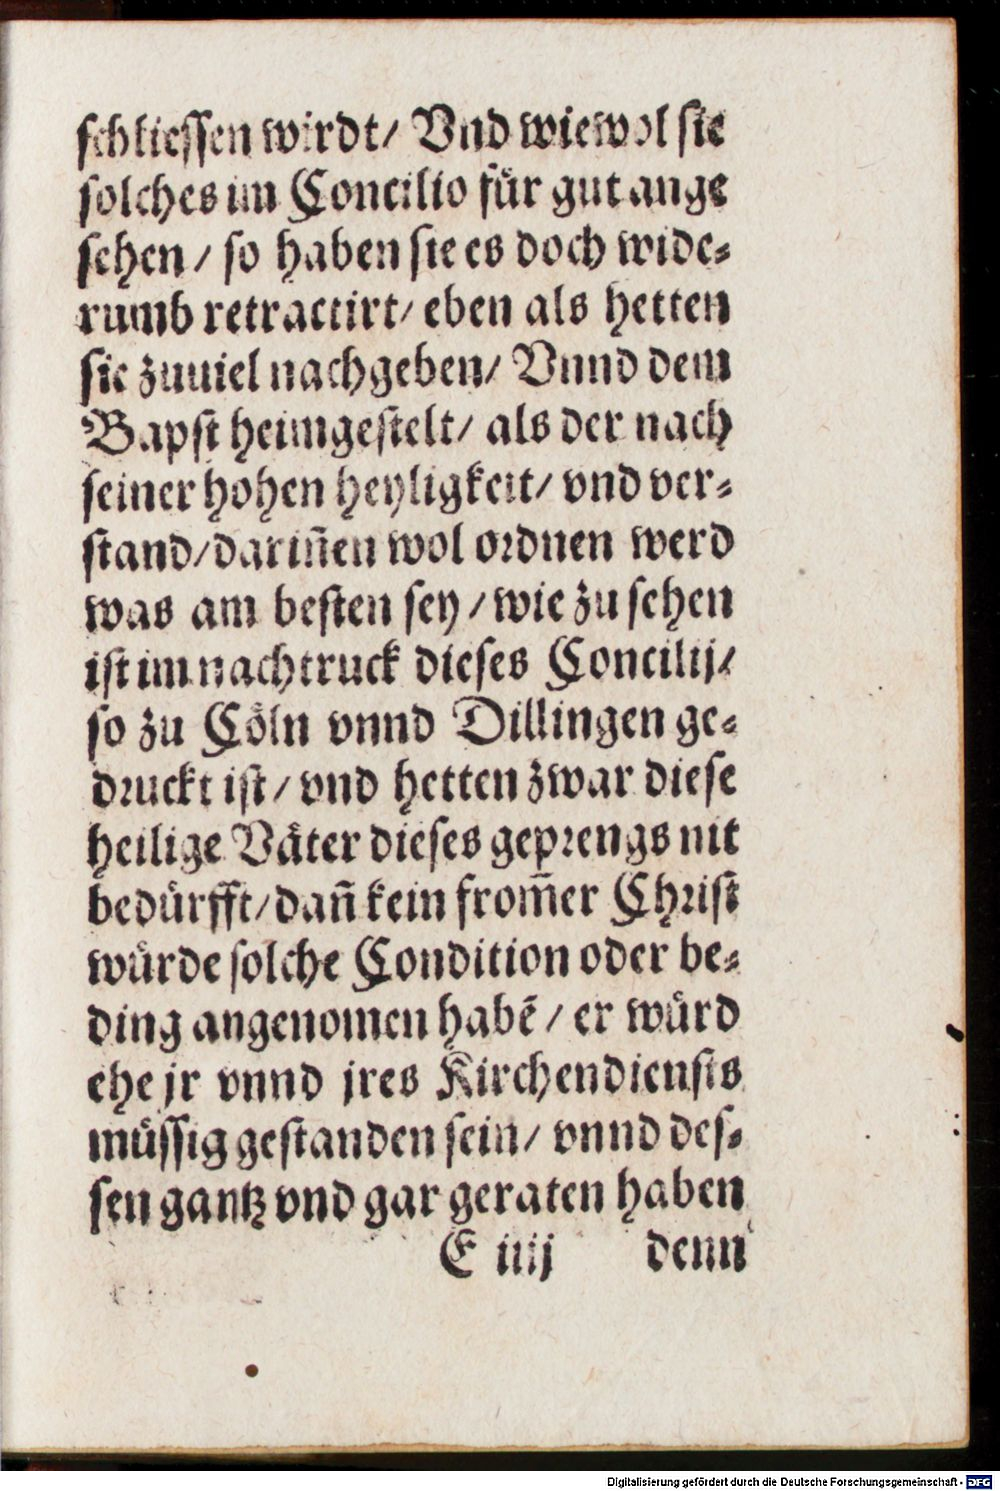 schliessen wirdt/ Vnd wiewol sie
solches im Concilio für gut ange
sehen/ so haben sie es doch wide⸗
rumb retractirt/ eben als hetten
sie zuuiel nachgeben/ Vnnd dem
Bapst heimgestelt/ als der nach
seiner hohen heyligkeit/ vnd ver⸗
stand/ darin̄en wol ordnen werd
was am besten sey/ wie zu sehen
ist im nachtruck dieses Concilij/
so zu Cöln vnnd Dillingen ge⸗
druckt ist/ vnd hetten zwar diese
heilige Väter dieses geprengs nit
bedürfft/ dan̄ kein from̄er Christ
würde solche Condition oder be⸗
ding angenomen habē/ er würd
ehe jr vnnd jres Kirchendiensts
müssig gestanden sein/ vnnd des⸗
sen gantz vnd gar geraten haben
E iiij denn
Digitalisierung gefördert durch die Deutsche Forschungsgemeinschaft - DFG